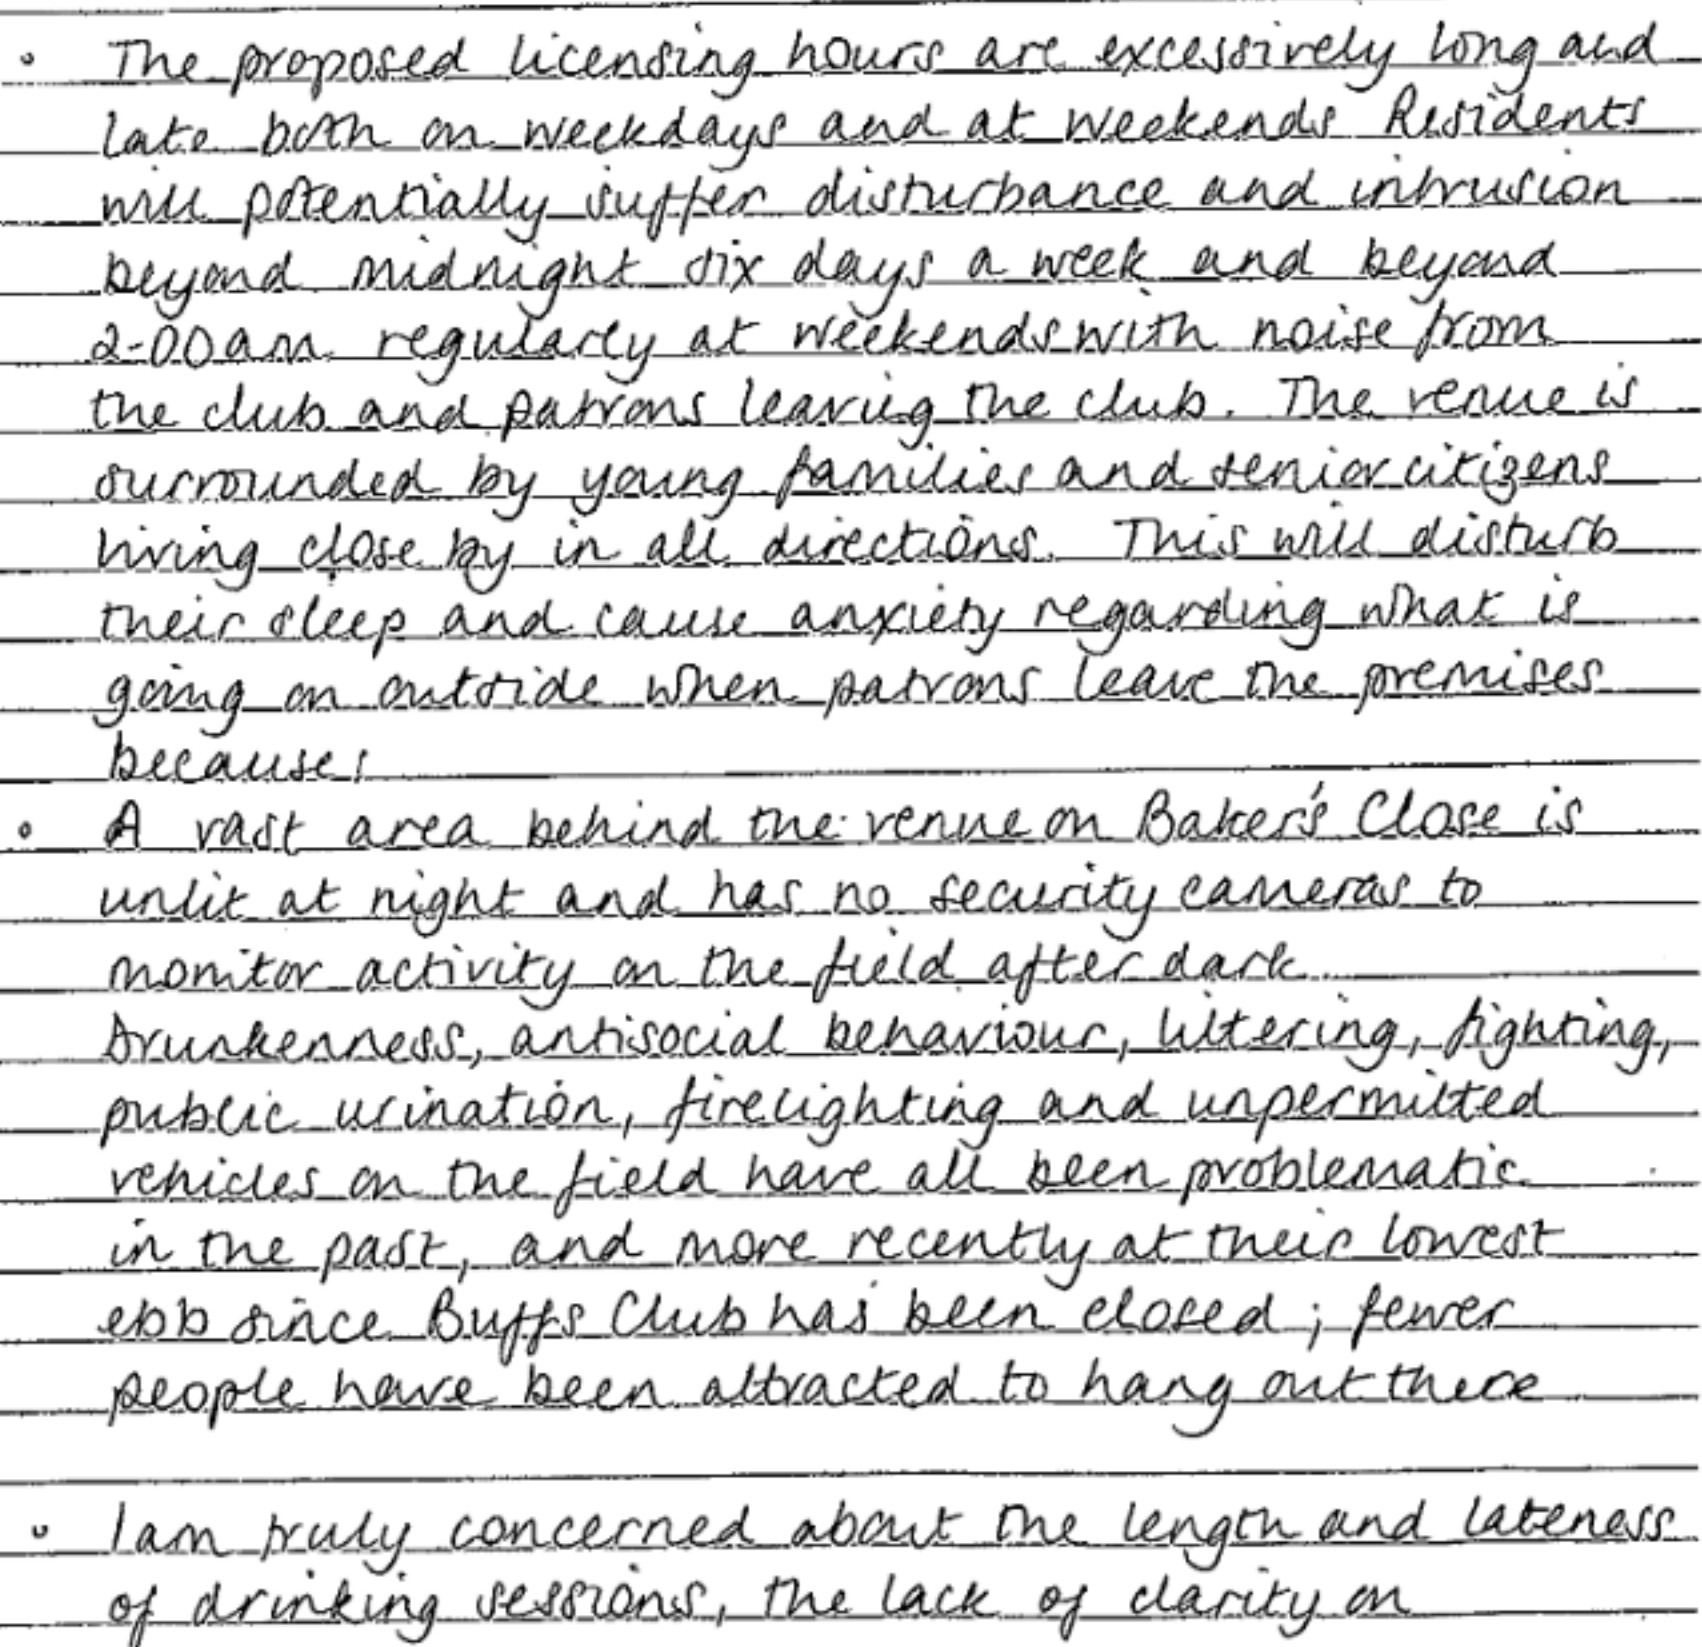 • The proposed licensing hours are excessively long and
late both on weekdays and at weekends Residents
will potentially suffer disturbance and intrusion
beyond midnight six days a week and beyond
2-00am regularly at weekends with noise from
the club and patrons leaving the club. The venue is
surrounded by young families and senior citizens
living close by in all directions. This will disturb
their sleep and cause anxiety regarding what is
going on outside when patrons leave the premises
because:
• A vast area behind the venue on Baker's Close is
unlit at night and has no security cameras to
monitor activity on the field after dark
Drunkenness, antisocial behaviour, littering, fighting,
public urination, firelighting and unpermitted
vehicles on the field have all been problematic
in the past, and more recently at their lowest
ebb since Buffs Club has been closed; fewer
people have been attracted to hang out there
• I am truly concerned about the length and lateness
of drinking sessions, the lack of clarity on